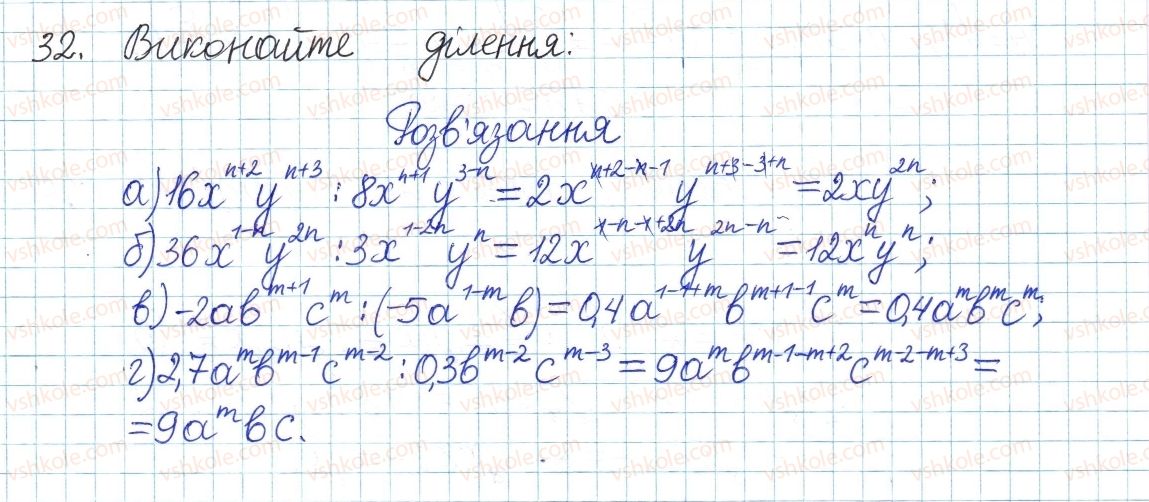 32. Виконайте ділення:
Розв'язання
а) 16xⁿ⁺²yⁿ⁺³ : 8xⁿ⁺¹y³⁻ⁿ = 2xⁿ⁺²⁻ⁿ⁻¹yⁿ⁺³⁻³⁺ⁿ = 2xy²ⁿ;
б) 36x¹⁻ⁿy²ⁿ : 3x¹⁻²ⁿyⁿ = 12x¹⁻ⁿ⁻¹⁺²ⁿy²ⁿ⁻ⁿ = 12xⁿyⁿ;
в) -2ab^{m+1}c^m : (-5a^{1-m}b) = 0,4a^{1-1+m}b^{m+1-1}c^m = 0,4a^m b^m c^m;
г) 2,7a^m b^{m-1}c^{m-2} : 0,3b^{m-2}c^{m-3} = 9a^m b^{m-1-m+2}c^{m-2-m+3} =
= 9a^m bc.